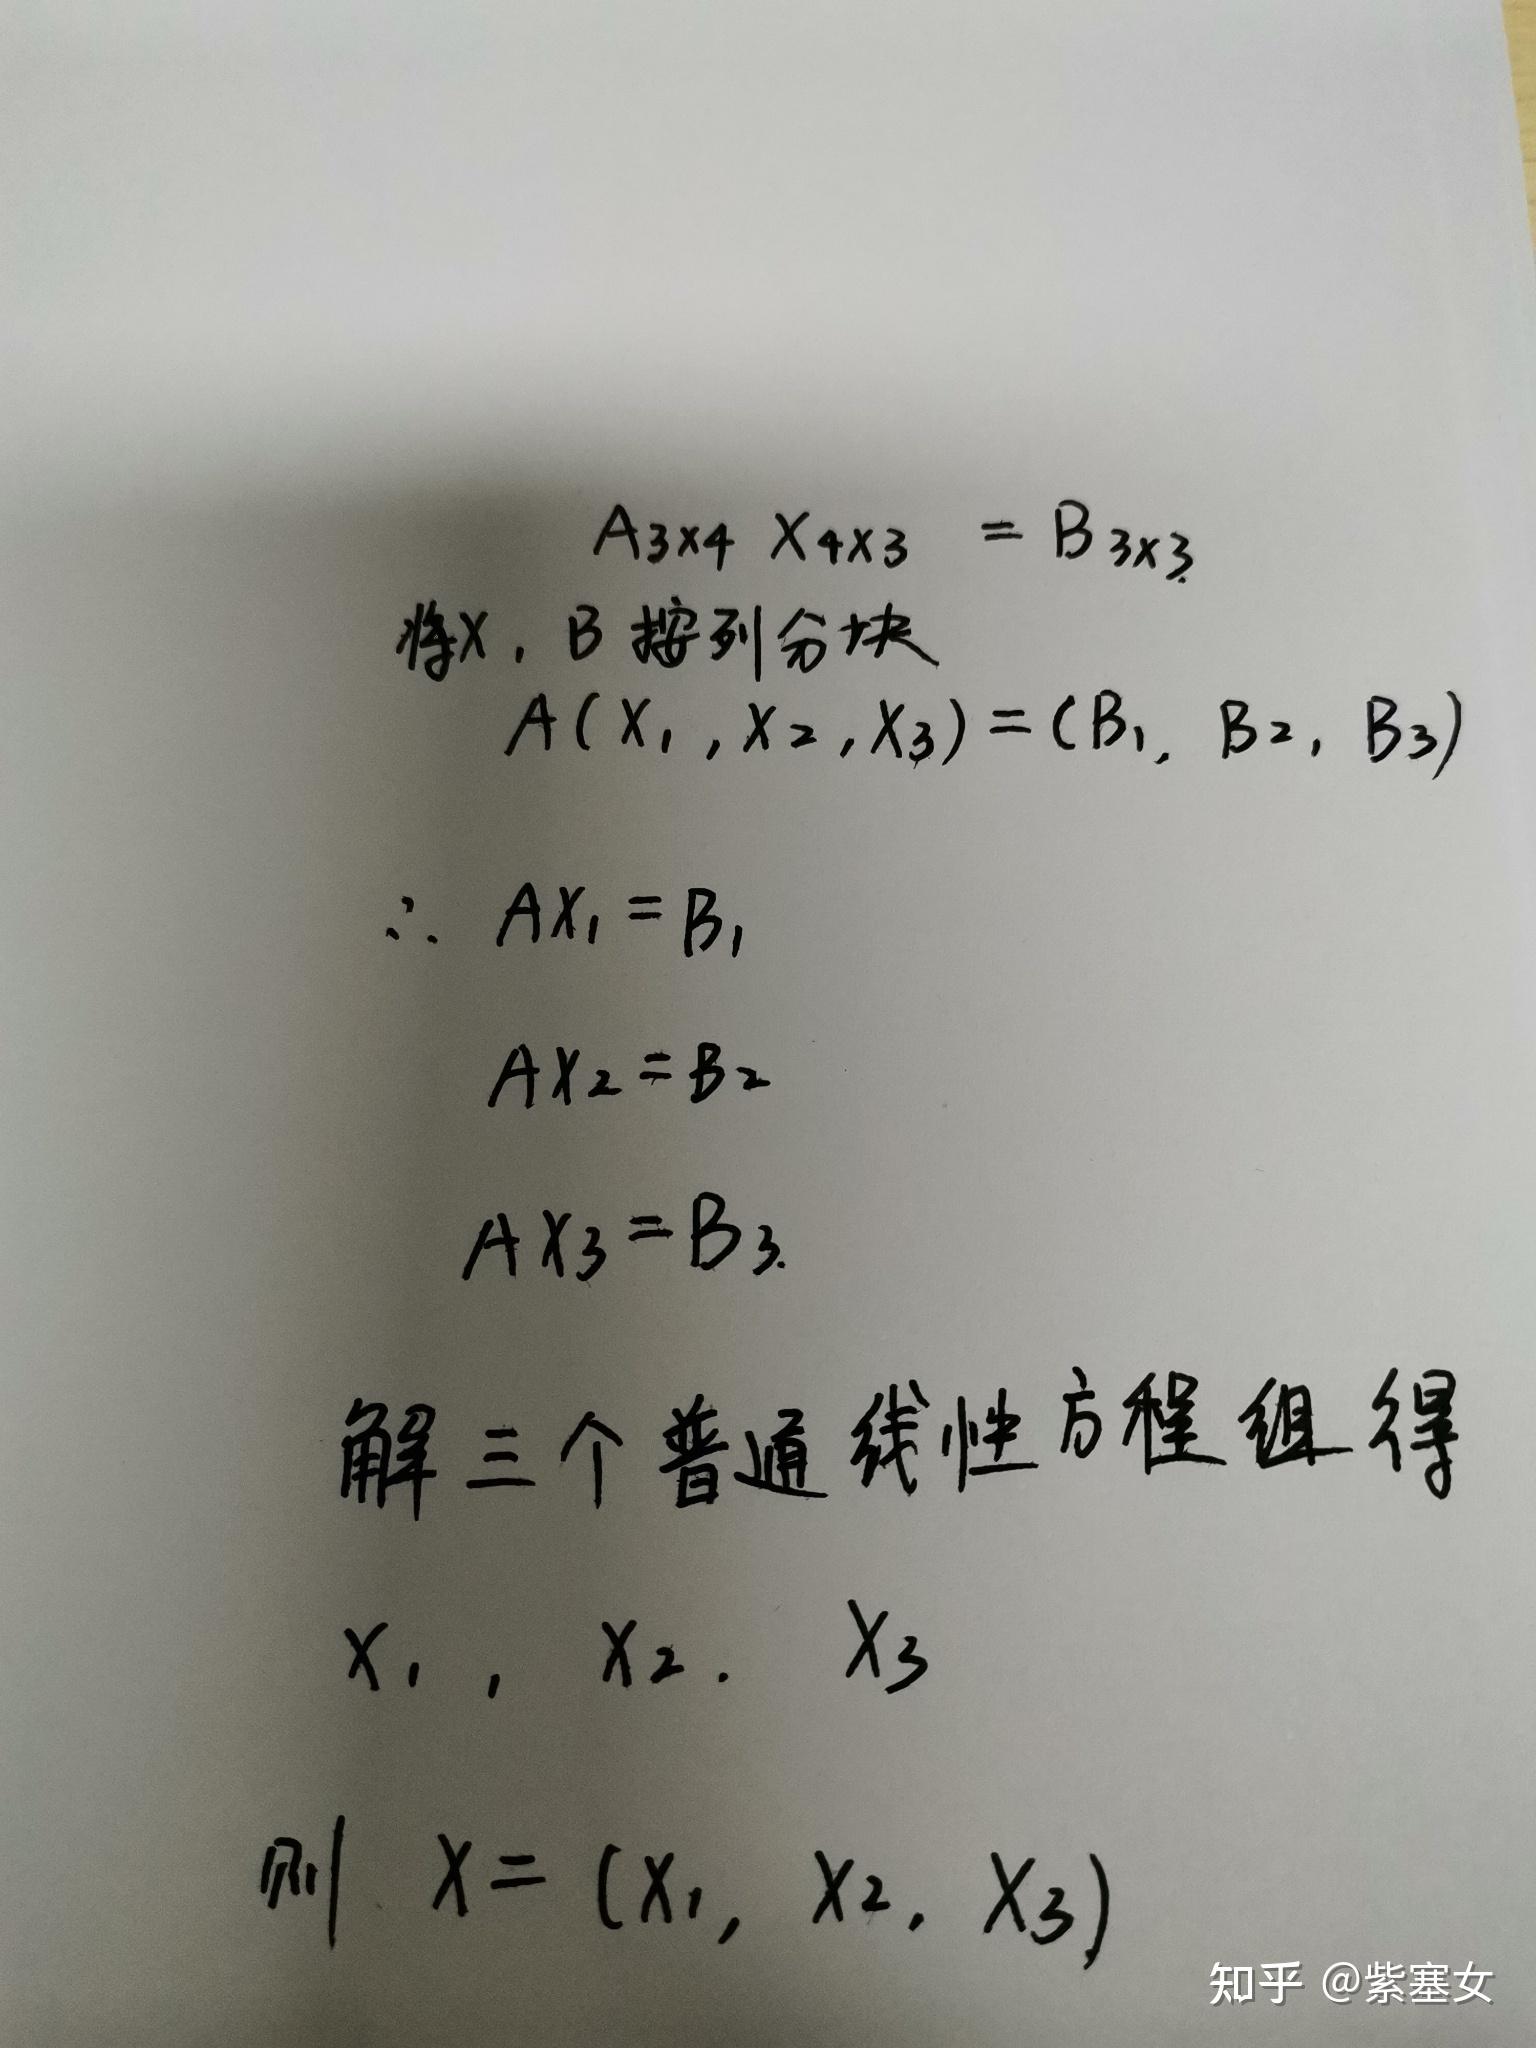 A3×4 X4×3 = B3×3.
将X, B按列分块
A(X1, X2, X3)=(B1, B2, B3)
∴ AX1=B1
AX2=B2
AX3=B3.
解三个普通线性方程组得
X1, X2. X3
则 X=(X1, X2, X3)
知乎 @紫塞女